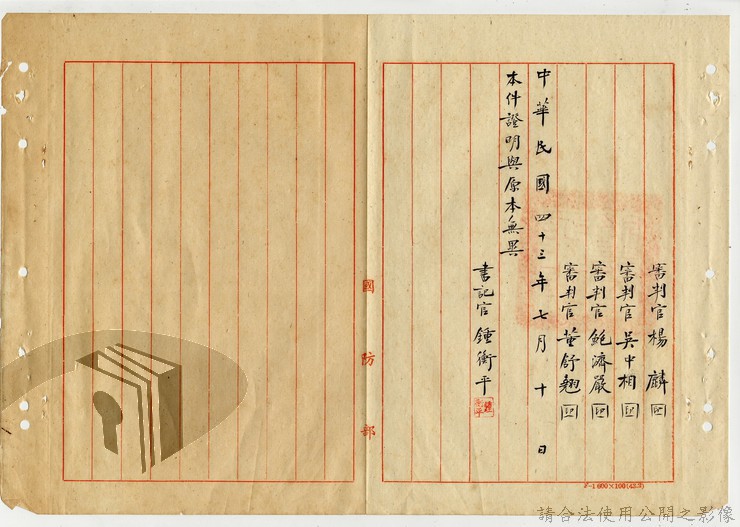 審判官楊麟印
審判官吳中相印
審判官鮑濟嚴印
審判官董舒翹印
中華民國四十三年七月十日
本件證明與原本無異
書記官鍾衡平
國防部
請合法使用公開之影像